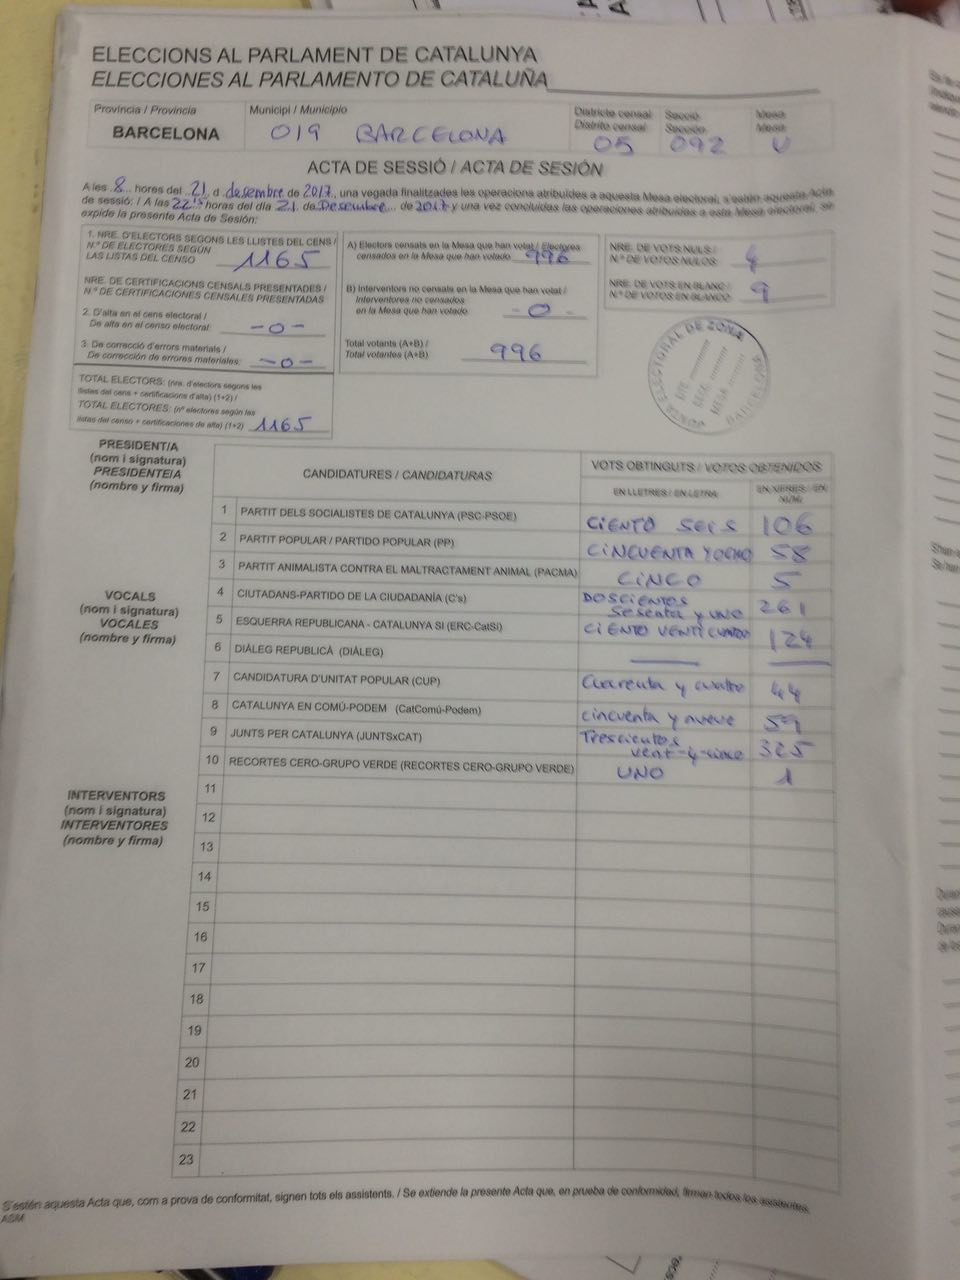 ELECCIONS AL PARLAMENT DE CATALUNYA
ELECCIONES AL PARLAMENTO DE CATALUÑA
Província / Provincia
BARCELONA
Municipi / Municipio
019 BARCELONA
Districte censal
Distrito censal
05
Secció
Sección
092
Mesa
Mesa
U
ACTA DE SESSIÓ / ACTA DE SESIÓN
A les 8 hores del 21 d desembre de 2017, una vegada finalitzades les operacions atribuïdes a aquesta Mesa electoral, s'estén aquesta Acta
de sessió: / A las 22'5 horas del día 21 de Desembre de 2017 y una vez concluidas las operaciones atribuidas a esta Mesa electoral, se
expide la presente Acta de Sesión:
1. NRE. D'ELECTORS SEGONS LES LLISTES DEL CENS /
N.º DE ELECTORES SEGÚN
LAS LISTAS DEL CENSO 1165
NRE. DE CERTIFICACIONS CENSALS PRESENTADES /
N.º DE CERTIFICACIONES CENSALES PRESENTADAS
2. D'alta en el cens electoral /
De alta en el censo electoral: -0-
3. De correcció d'errors materials /
De corrección de errores materiales: -0-
TOTAL ELECTORS: (nre. d'electors segons les
llistes del cens + certificacions d'alta) (1+2) /
TOTAL ELECTORES: (nº electores según las
listas del censo + certificaciones de alta) (1+2) 1165
A) Electors censats en la Mesa que han votat / Electores
censados en la Mesa que han votado 996
B) Interventors no censats en la Mesa que han votat /
Interventores no censados
en la Mesa que han votado -0-
Total votants (A+B) /
Total votantes (A+B) 996
NRE. DE VOTS NULS /
N.º DE VOTOS NULOS 4
NRE. DE VOTS EN BLANC /
N.º DE VOTOS EN BLANCO 9
JUNTA ELECTORAL DE ZONA
DTE.
SECC.
MESA
BARCELONA
PRESIDENT/A
(nom i signatura)
PRESIDENTE/A
(nombre y firma)
VOCALS
(nom i signatura)
VOCALES
(nombre y firma)
INTERVENTORS
(nom i signatura)
INTERVENTORES
(nombre y firma)
CANDIDATURES / CANDIDATURAS
VOTS OBTINGUTS / VOTOS OBTENIDOS
EN LLETRES / EN LETRA
EN XIFRES / EN NÚM.
1 PARTIT DELS SOCIALISTES DE CATALUNYA (PSC-PSOE) CIENTO SEIS 106
2 PARTIT POPULAR / PARTIDO POPULAR (PP) CINCUENTA Y OCHO 58
3 PARTIT ANIMALISTA CONTRA EL MALTRACTAMENT ANIMAL (PACMA) CINCO 5
4 CIUTADANS-PARTIDO DE LA CIUDADANÍA (C's) DOSCIENTOS
Sesenta y uno 261
5 ESQUERRA REPUBLICANA - CATALUNYA SÍ (ERC-CatSí) CIENTO VENTICUATRO 124
6 DIÀLEG REPUBLICÀ (DIÀLEG)
7 CANDIDATURA D'UNITAT POPULAR (CUP) Cuarenta y cuatro 44
8 CATALUNYA EN COMÚ-PODEM (CatComú-Podem) cincuenta y nueve 59
9 JUNTS PER CATALUNYA (JUNTSxCAT) Trescientos
vent-y-cinco 325
10 RECORTES CERO-GRUPO VERDE (RECORTES CERO-GRUPO VERDE) UNO 1
11
12
13
14
15
16
17
18
19
20
21
22
23
S'estén aquesta Acta que, com a prova de conformitat, signen tots els assistents. / Se extiende la presente Acta que, en prueba de conformidad, firman todos los asistentes.
ASM